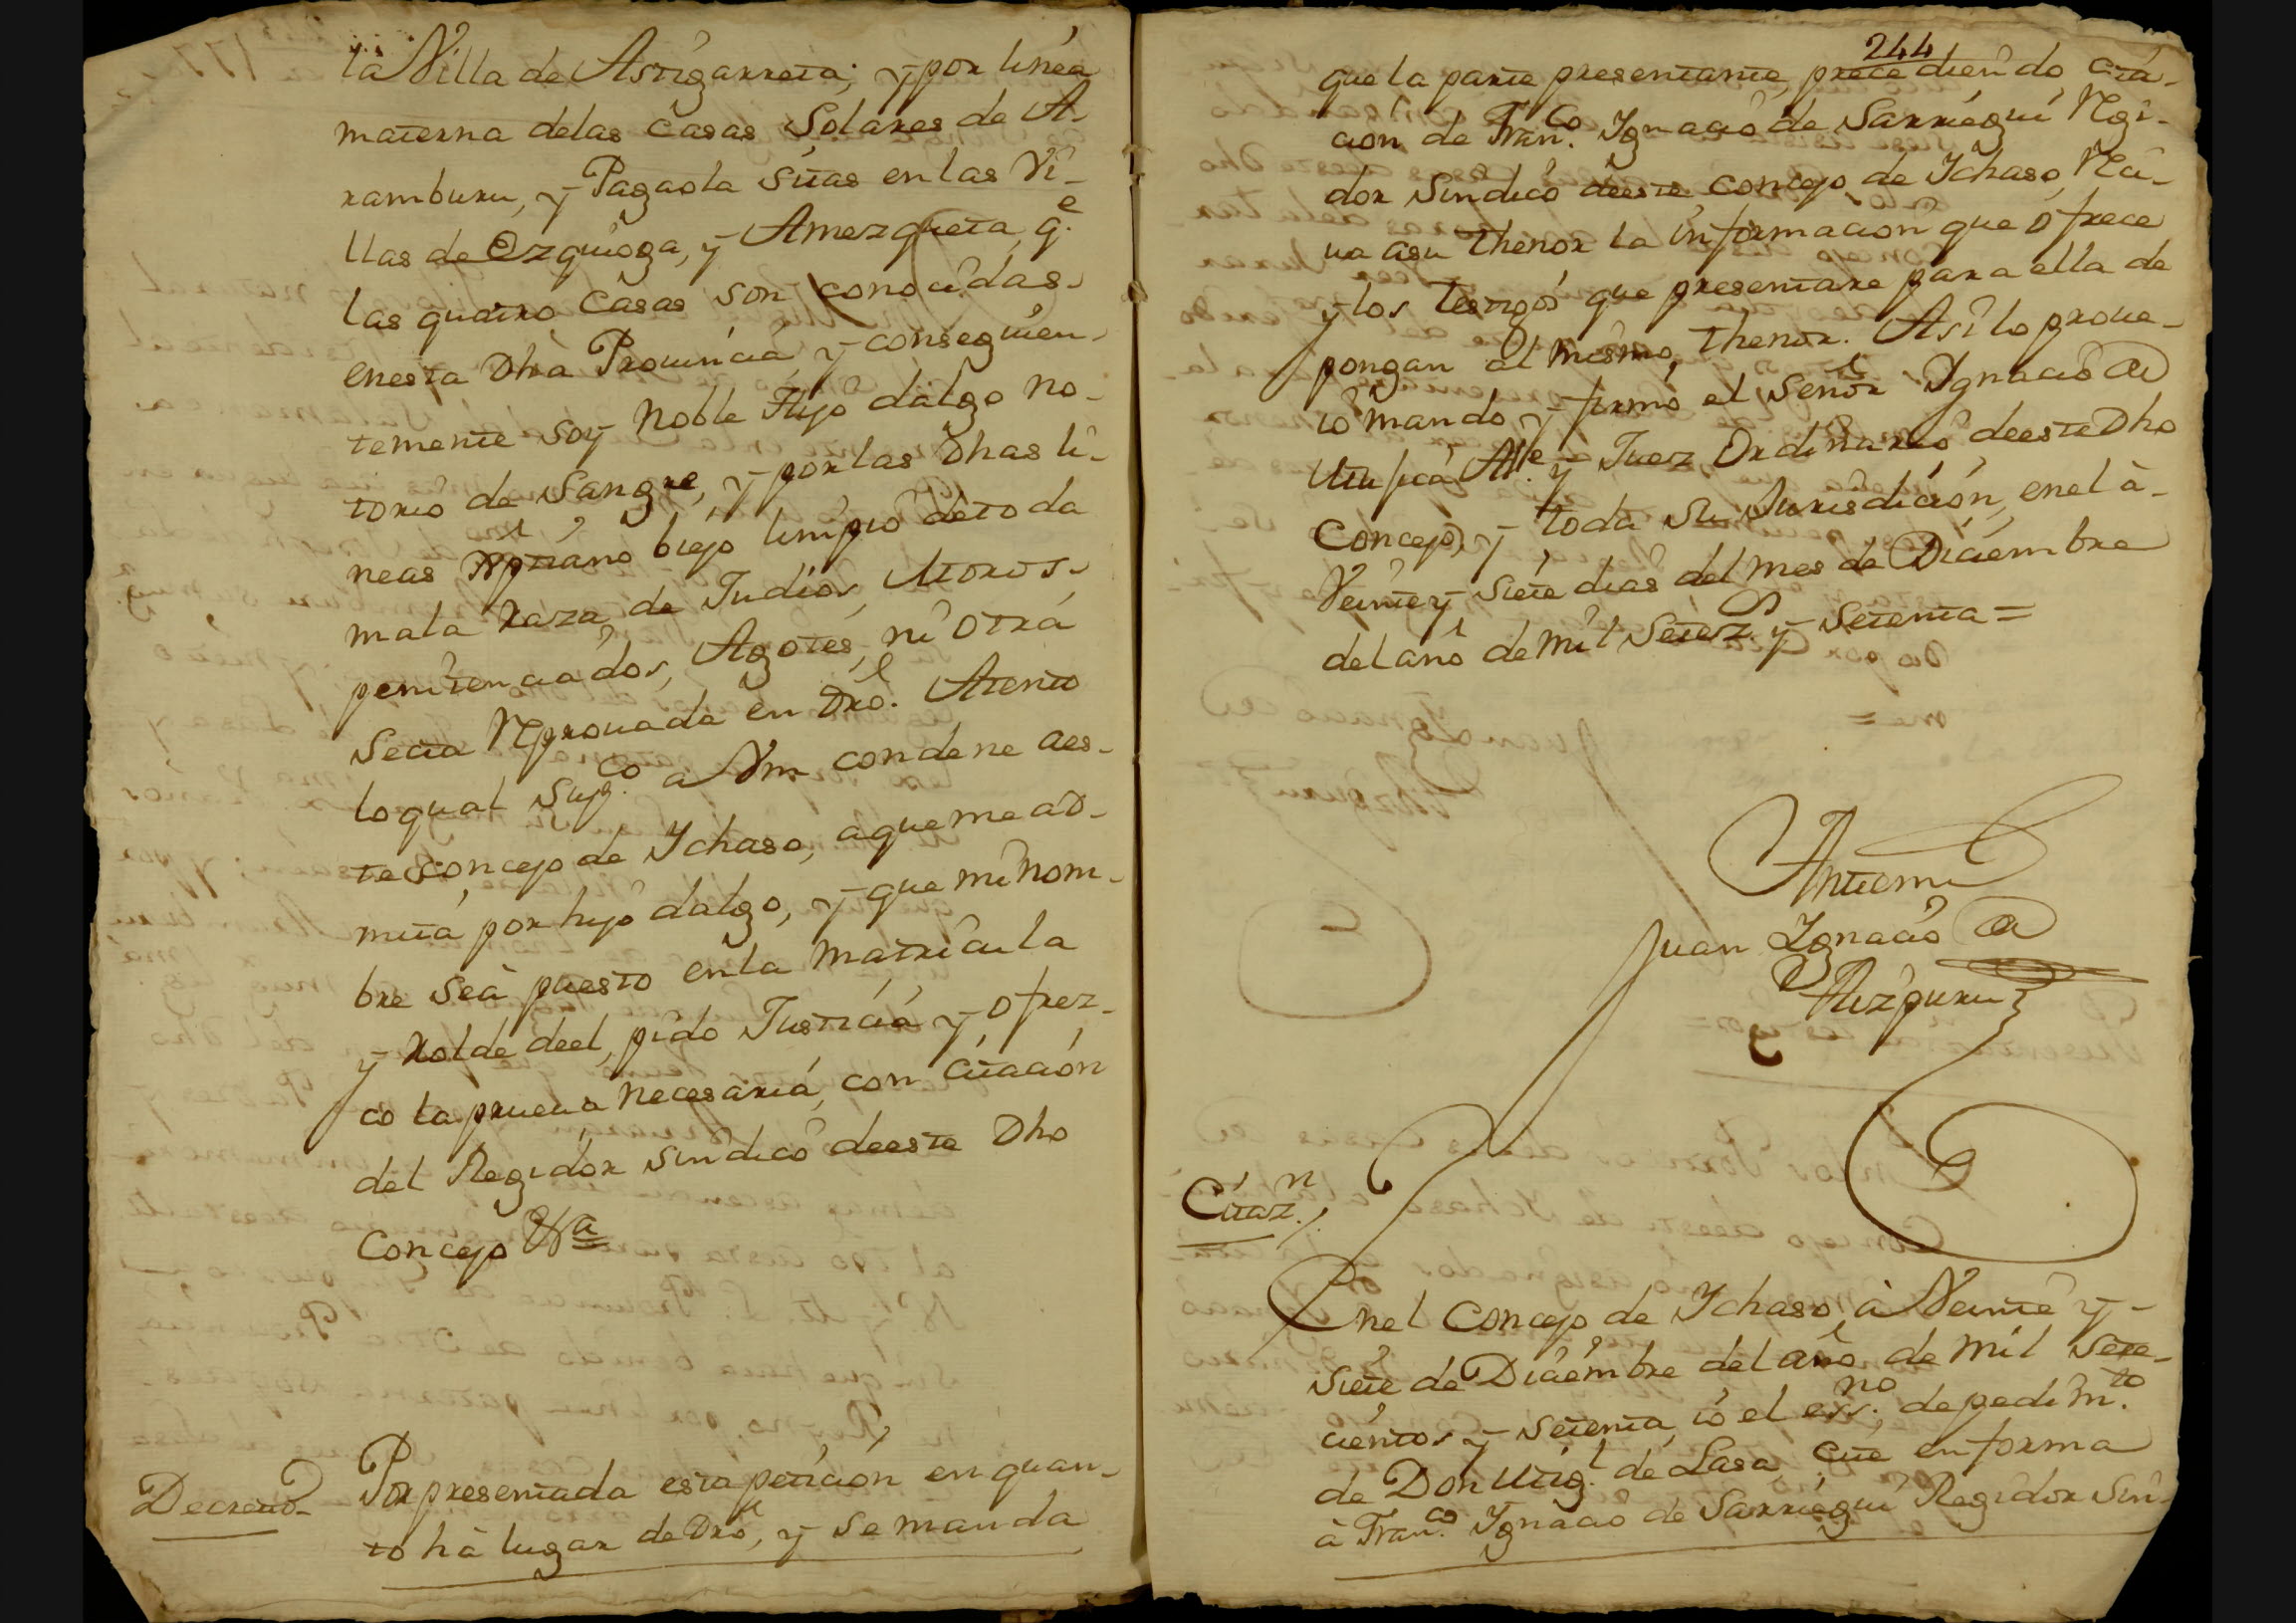 la Villa de Astigarreta; y por linea
materna delas Casas Solares de A-
ramburu, y Pagaola sitas en las Vi-
llas de Ezquioga, y Amezqueta, q.e
las quatro Casas son conocidas
enesta Dha Prouincia, y conseguien-
temente soy Noble Hijo dalgo no-
torio de Sangre, y por las Dhas li-
neas Xptiano biejo limpio de toda
mala Raza de Judios, Moros,
penitenciados, Agotes, ni otra
Secta Reprouada en Dro. Atento
lo qual Sup.co a Vm condene aes-
te Concejo de Ichaso, a que me ad-
mita por hijo dalgo, y que mi nom-
bre sea puesto en la Matricula
y Rolde deel, pido Justicia y ofrez-
co la prueua necesaria, con Citación
del Regidor Sindico deeste Dho
Concejo &a
Decreto
Por presentada esta petición en quan-
to hà lugar de Dro, y se manda
244
que la parte presentante, precediendo Cita-
cion de Fran.co Ignacio de Sarriegui Regi-
dor Sindico deeste Concejo de Ichaso, Reci-
ua asu thenor la informacion que ofrece
y los testigos que presentare para ella de
pongan al mismo thenor. Asi lo proue-
ió mando, y firmó el Señor Ignacio de
Mu jica Al.e y Juez Ordinario deeste Dho
Concejo, y toda su Jurisdición, enel à
Veinte y siete dias del mes de Diciembre
del año de mil Setez.s y Setenta =
Antemi
Juan Ignacio de
Aizpuru
Citaz.n
Enel Concejo de Ichaso, à Veinte y
siete de Diciembre del año de mil Sete-
cientos y setenta, ió el ess.no, de pedim.to
de Don Mig.l de Lasa, cité en forma
à Fran.co Ignacio de Sarriegui Regidor Sin-